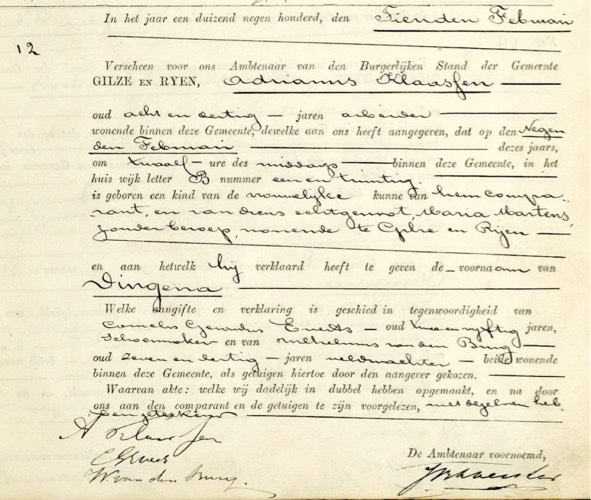 In het jaar een duizend negen honderd, den Tienden Februari
12
Verscheen voor ons Ambtenaar van den Burgerlijken Stand der Gemeente
GILZE EN RYEN, Adrianus Klaassen
oud acht en dertig jaren arbeider
wonende binnen deze Gemeente, dewelke aan ons heeft aangegeven, dat op den Negen
den Februari dezes jaars,
om twaalf ure des middags binnen deze Gemeente, in het
huis wijk letter B nummer een en twintig
is geboren een kind van de vrouwelijke kunne van hem compa-
rant, en van diens echtgenoot, Maria Martens,
zonder beroep, wonende te Gilze en Rijen
en aan hetwelk hij verklaard heeft te geven de voornaam van
Dingena
Welke aangifte en verklaring is geschied in tegenwoordigheid van
Cornelis Gerardus oud twee en vijftig jaren,
Schoenmaker en van Wilhelmus van den Burg
oud zeven en dertig jaren veldwachter beide wonende
binnen deze Gemeente, als getuigen hiertoe door den aangever gekozen.
Waarvan akte: welke wij dadelijk in dubbel hebben opgemaakt, en na door
ons aan den comparant en de getuigen te zijn voorgelezen, met dezelven heb-
ben geteekend
A Klaassen
W. van den Burg.
De Ambtenaar voornoemd,